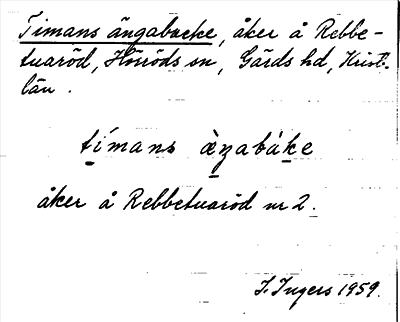 Timans ängabacke, åker å Rebbe-
tuaröd, Hörröds sn, Gärds hd, Krist.
län.
tímans àŋabàke
åker å Rebbetuaröd nr 2.
I. Ingers 1959.